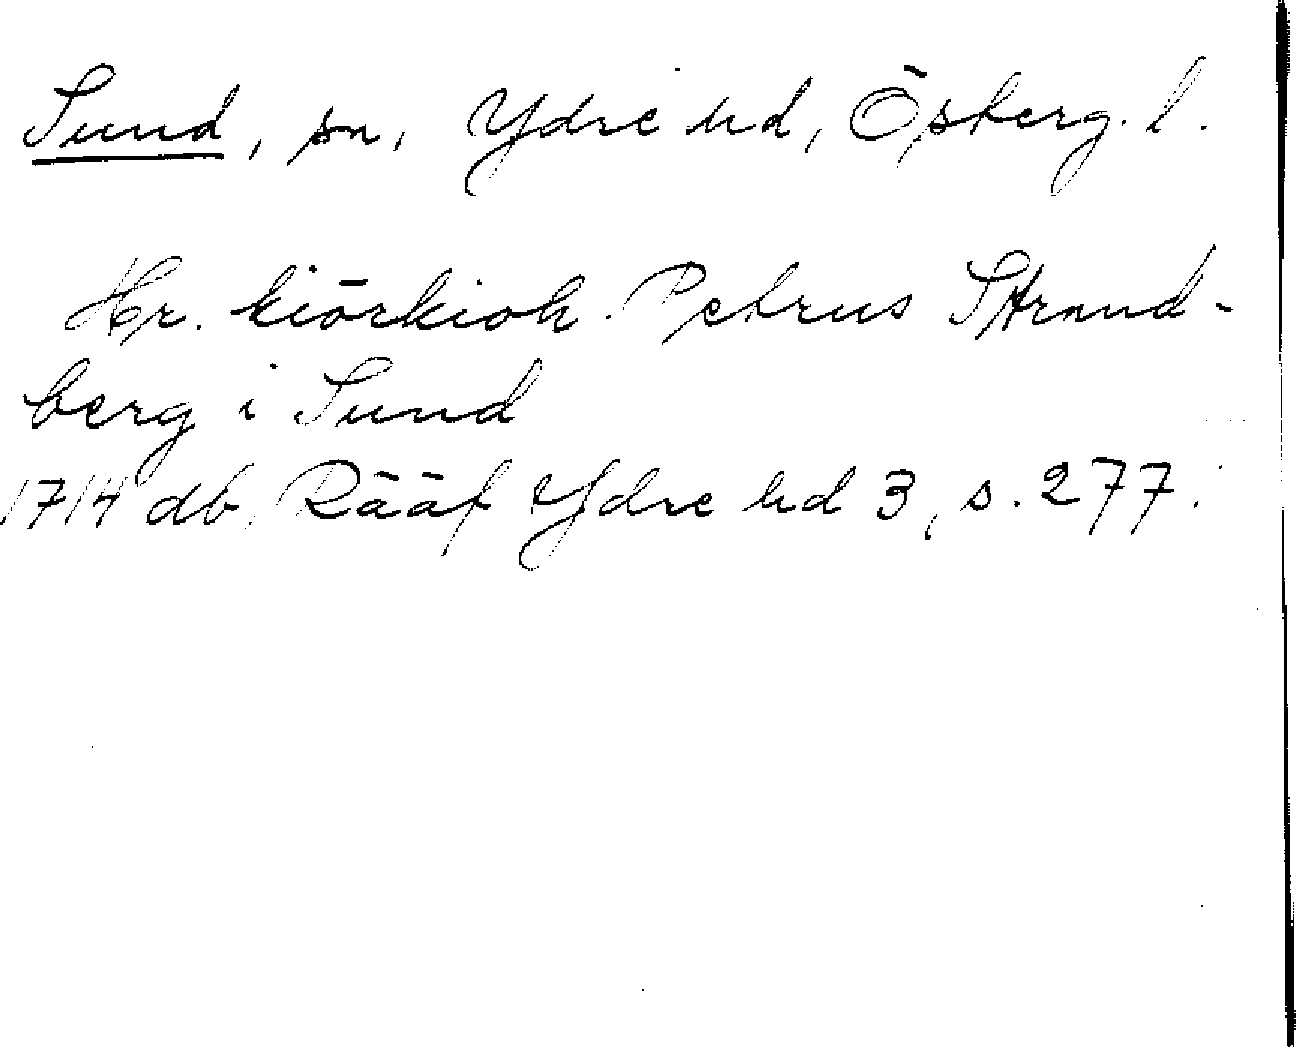 Sund, sn, Ydre hd, Österg. l.
Hr. kiörkioh. Petrus Strand-
berg i Sund
1714 db, Rääf Ydre hd 3, s. 277.